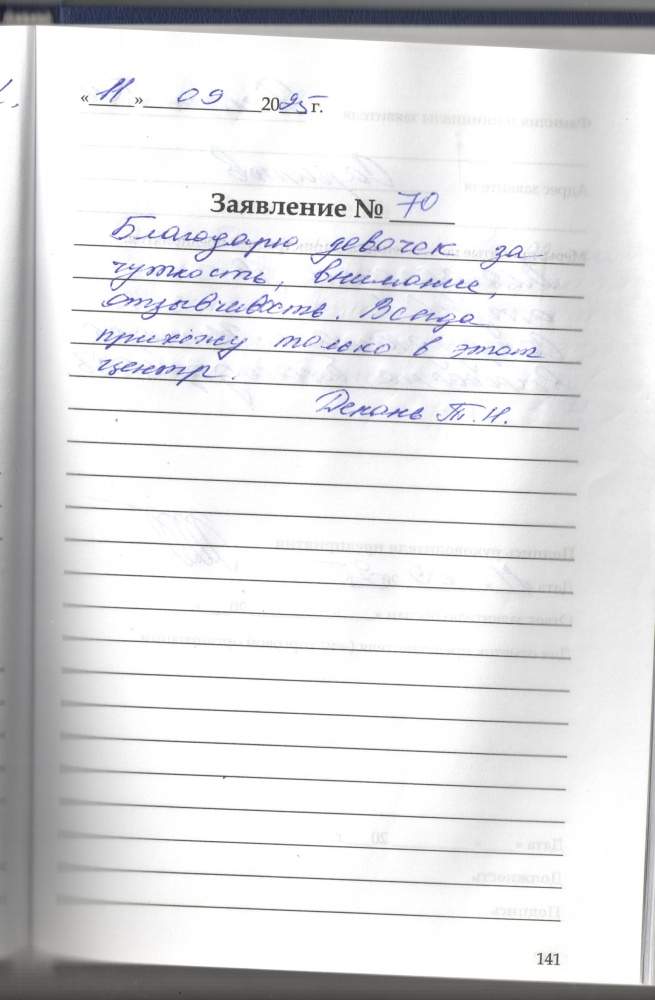 «11» 09 2025 г.
Заявление № 70
Благодарю девочек за
чуткость, внимание,
отзывчивость. Всегда
прихожу только в этот
центр.
Т.Н.
141